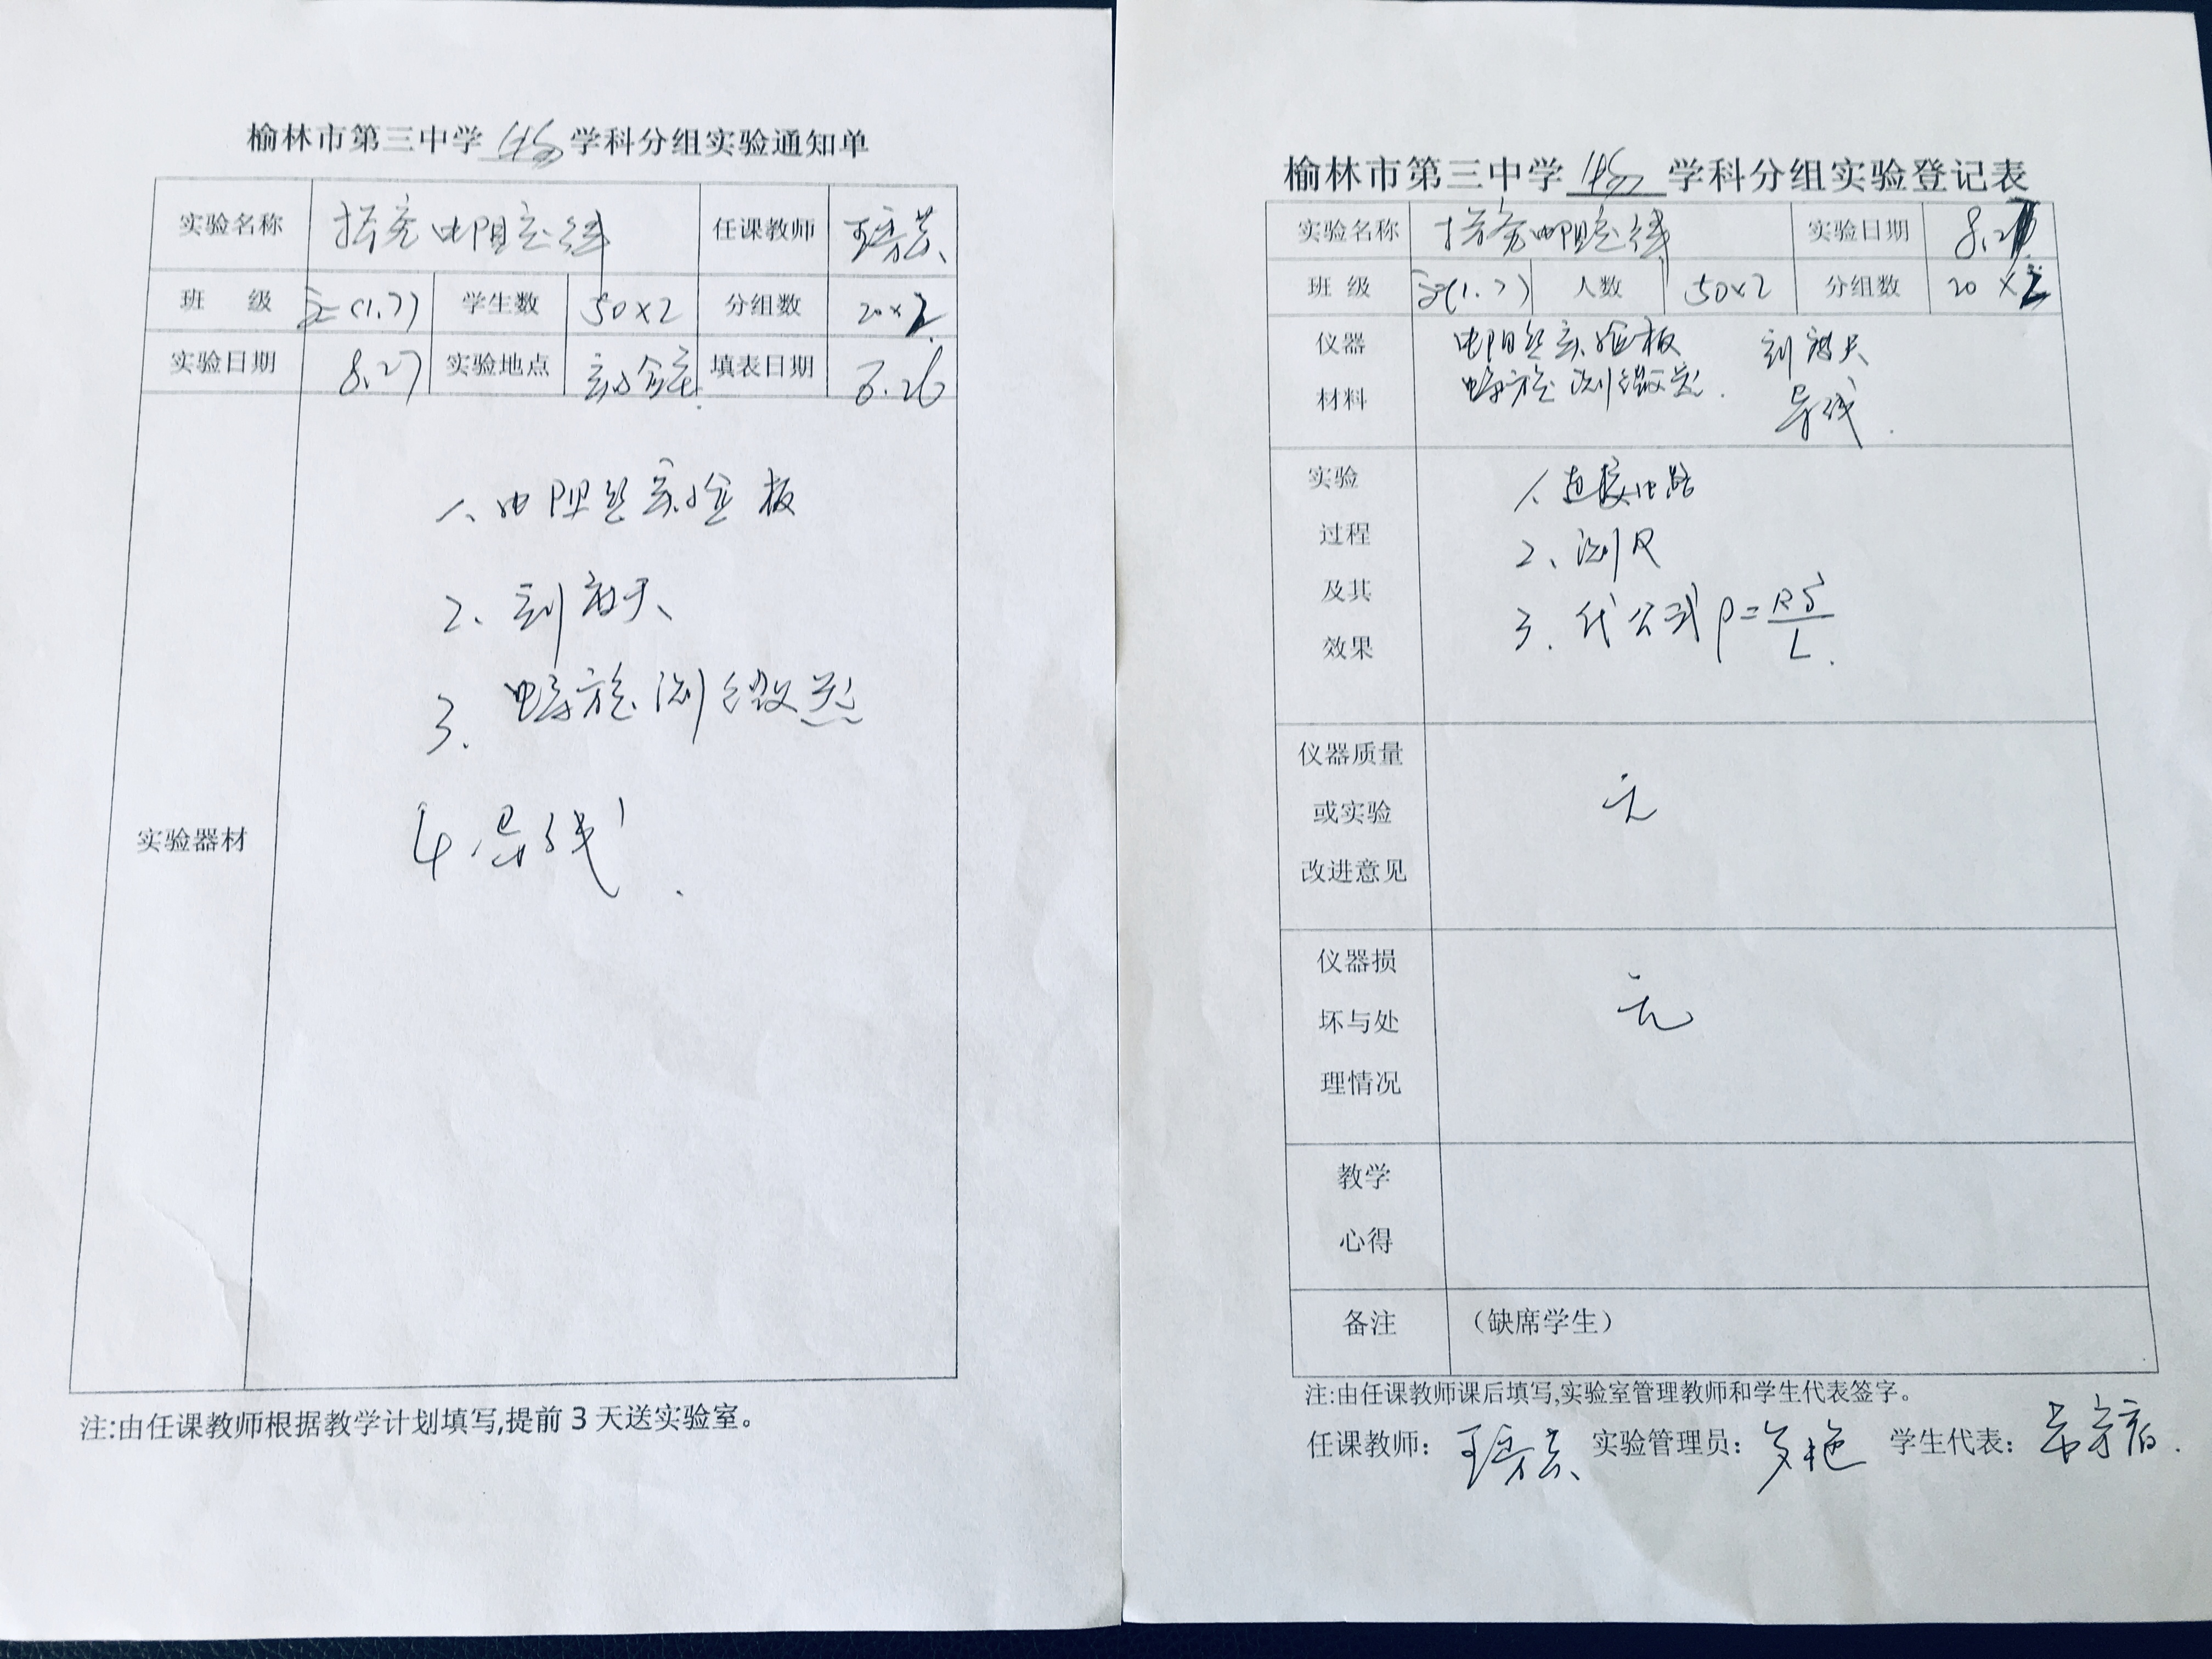 榆林市第三中学 物理 学科分组实验通知单
实验名称 探究电阻定律 任课教师
班 级 高二(1.7) 学生数 50×2 分组数 20×2
实验日期 8.27 实验地点 实验室 填表日期 8.26
实验器材
1、电阻丝实验板
2、刻度尺
3. 螺旋测微器
4.导线.
注:由任课教师根据教学计划填写,提前3天送实验室。
榆林市第三中学 物理 学科分组实验登记表
实验名称 探究电阻定律 实验日期 8.27
班 级 高二(1.7) 人数 50×2 分组数 20×2
仪器 电阻丝实验板 刻度尺
材料 螺旋测微器. 导线.
实验 1.连接电路
过程 2、测R
及其 3. 代公式ρ=RS/L.
效果
仪器质量
或实验 无
改进意见
仪器损
坏与处 无
理情况
教学
心得
备注 （缺席学生）
注:由任课教师课后填写,实验室管理教师和学生代表签字。
任课教师： 实验管理员： 学生代表：